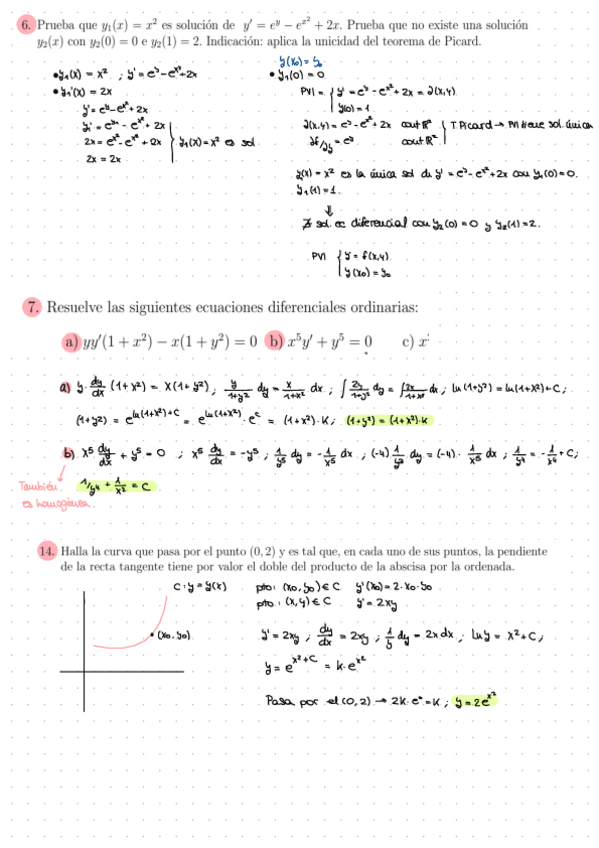 6. Prueba que y₁(x) = x² es solución de y′ = e^y − e^{x²} + 2x. Prueba que no existe una solución
y₂(x) con y₂(0) = 0 e y₂(1) = 2. Indicación: aplica la unicidad del teorema de Picard.
• y₁(x) = x² ; y' = e^y - e^{x²} + 2x
• y₁'(x) = 2x
y' = e^y - e^{x²} + 2x
2x = e^{x²} - e^{x²} + 2x
2x = 2x
y₁(x) = x² es sol
y(x₀) = y₀
• y₁(0) = 0
PVI = { y' = e^y - e^{x²} + 2x = f(x,y)
y(0) = 1
f(x,y) = e^y - e^{x²} + 2x cont ℝ²
∂f/∂y = e^y cont ℝ²
T. Picard → PVI tiene sol. única
y(x) = x² es la única sol de y' = e^y - e^{x²} + 2x con y₁(0) = 0.
y₁(1) = 1.
⇓
∄ sol. ec diferencial con y₂(0) = 0 y y₂(1) = 2.
PVI { y' = f(x,y)
y(x₀) = y₀
7. Resuelve las siguientes ecuaciones diferenciales ordinarias:
a) yy′(1 + x²) − x(1 + y²) = 0 b) x⁵y′ + y⁵ = 0 c) x
a) y · dy/dx (1+x²) = x(1+y²) ; y/(1+y²) dy = x/(1+x²) dx ; ∫ 2y/(1+y²) dy = ∫ 2x/(1+x²) dx ; ln(1+y²) = ln(1+x²) + C ;
(1+y²) = e^{ln(1+x²)+C} = e^{ln(1+x²)} · e^C = (1+x²) · K ; (1+y²) = (1+x²) · K
b) x⁵ dy/dx + y⁵ = 0 ; x⁵ dy/dx = -y⁵ ; 1/y⁵ dy = - 1/x⁵ dx ; (-4) 1/y⁵ dy = (-4) · 1/x⁵ dx ; 1/y⁴ = - 1/x⁴ + C ;
También
es homogénea.
14. Halla la curva que pasa por el punto (0, 2) y es tal que, en cada uno de sus puntos, la pendiente
de la recta tangente tiene por valor el doble del producto de la abscisa por la ordenada.
C : y = y(x)
pto: (x₀, y₀) ∈ C y'(x₀) = 2 · x₀ · y₀
pto: (x, y) ∈ C y' = 2xy
(x₀, y₀)
y' = 2xy ; dy/dx = 2xy ; 1/y dy = 2x dx ; ln y = x² + C ;
y = e^{x²+C} = k · e^{x²}
Pasa por el (0, 2) → 2k · e° = K ; y = 2e^{x²}